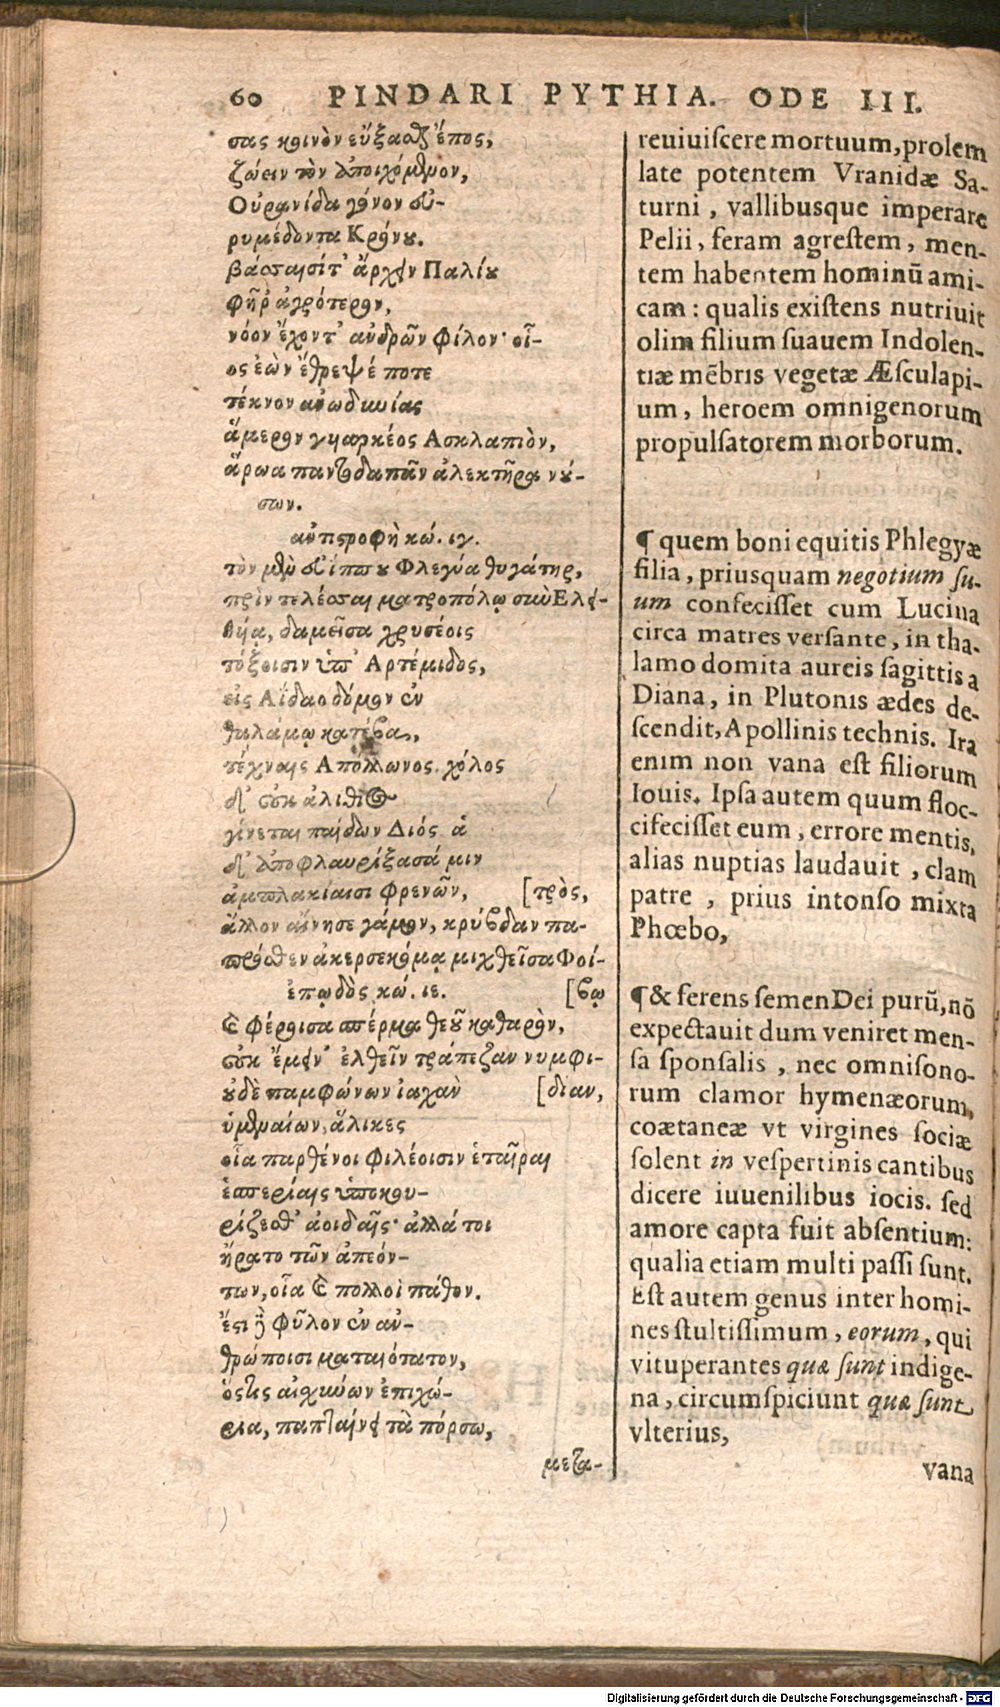 60 PINDARI PYTHIA. ODE III.
σας κοινὸν εὔξαςθ ἔπος,
ζώειν τὸν ἀποιχόμενον,
Οὐρανίδα γόνον εὐ-
ρυμέδοντα Κρόνου.
βάσσαισί τ' ἄρχειν Παλίου
φῆρ' ἀγρότερον,
νόον ἔχοντ' ἀνδρῶν φίλον· οἷ-
ος ἐὼν ἔθρεψέ ποτε
τέκνον ἀνωδυνίας
ἅμερον γυιαρκέος Ασκλαπιὸν,
ἥρωα παντοδαπᾶν ἀλεκτῆρα νού-
σων.
ἀντιστροφὴ κώ. ιγ.
τὸν μὲν εὐίππου Φλεγύα θυγάτηρ,
πρὶν τελέσσαι ματροπόλῳ σὺν Ελει-
θυία, δαμεῖσα χρυσέοις
τόξοισιν ὑπ' Αρτέμιδος,
εἰς Αΐδαο δόμον ἐν
θαλάμῳ κατέβα,
τέχναις Απόλλωνος. χόλος
δ' οὐκ ἀλίθιος
γίνεται παίδων Διός· ἁ
δ' ἀποφλαυρίξασά μιν
ἀμπλακίαισι φρενῶν, [τρὸς,
ἄλλον αἴνησε γάμον, κρύβδαν πα-
πρόσθεν ἀκερσεκόμᾳ μιχθεῖσα Φοί-
ἐπῳδὸς κώ. ιε. [βῳ
καὶ φέροισα σπέρμα θεοῦ καθαρὸν,
οὐκ ἔμειν' ἐλθεῖν τράπεζαν νυμφι-
οὐδὲ παμφώνων ἰαχὰν [δίαν,
ὑμεναίων, ἅλικες
οἷα παρθένοι φιλέοισιν ἑταῖραι
ἑσπερίαις ὑποκου-
ρίζεσθ' ἀοιδαῖς· ἀλλά τοι
ἤρατο τῶν ἀπεόν-
των, οἷα καὶ πολλοὶ πάθον.
ἔστι δὲ φῦλον ἐν ἀν-
θρώποισι ματαιότατον,
ὅστις αἰσχύνων ἐπιχώ-
ρια, παπταίνει τὰ πόρσω,
μετα-
reuiuiscere mortuum, prolem
late potentem Vranidæ Sa-
turni, vallibusque imperare
Pelii, feram agrestem, men-
tem habentem hominū ami-
cam: qualis existens nutriuit
olim filium suauem Indolen-
tiæ mēbris vegetæ Æsculapi-
um, heroem omnigenorum
propulsatorem morborum.
¶ quem boni equitis Phlegyæ
filia, priusquam negotium su-
um confecisset cum Lucina
circa matres versante, in tha-
lamo domita aureis sagittis a
Diana, in Plutonis ædes de-
scendit, Apollinis technis. Ira
enim non vana est filiorum
Iouis. Ipsa autem quum floc-
cifecisset eum, errore mentis,
alias nuptias laudauit, clam
patre, prius intonso mixta
Phœbo,
¶ & ferens semen Dei purū, nō
expectauit dum veniret men-
sa sponsalis, nec omnisono-
rum clamor hymenæorum,
coætaneæ vt virgines sociæ
solent in vespertinis cantibus
dicere iuuenilibus iocis. sed
amore capta fuit absentium:
qualia etiam multi passi sunt.
Est autem genus inter homi-
nes stultissimum, eorum, qui
vituperantes quæ sunt indige-
na, circumspiciunt quæ sunt
vlterius,
vana
Digitalisierung gefördert durch die Deutsche Forschungsgemeinschaft - DFG